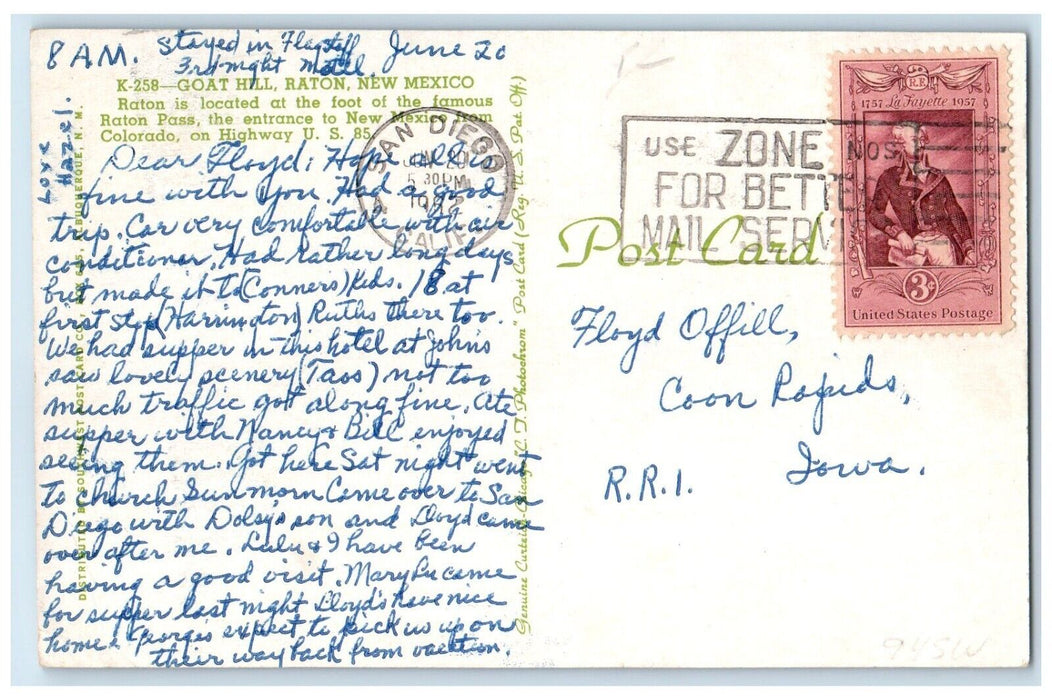 8 A.M. Stayed in Flagstaff June 20
3rd night Motel.
K-258—GOAT HILL, RATON, NEW MEXICO
Raton is located at the foot of the famous
Raton Pass, the entrance to New Mexico from
Colorado, on Highway U. S. 85.
Dear Floyd: Hope all is
fine with you. Had a good
trip. Car very comfortable with air
conditioner. Had rather long days
but made it to (Conners) Kids. 18 at
first stop (Harrington) Ruths there too.
We had supper in this hotel at Johns
saw lovely scenery (Taos) not too
much traffic got along fine. Ate
supper with Nancy & Bill enjoyed
seeing them. Got here Sat night went
to church Sun morn Came over to San
Diego with Dolsy's son and Lloyd came
over after me. Lulu & I have been
having a good visit. Mary Lu came
for supper last night Lloyd's have nice
home. Georges expect to pick us up on
their way back from vacation.
Love
Hazel.
DISTRIBUTED BY SOUTHWEST POST CARD CO., ALBUQUERQUE, N. M.
Genuine Curteich-Chicago "C. T. Photochrom" Post Card (Reg. U. S. Pat. Off.)
SAN DIEGO
5 30 PM
CALIF.
USE ZONE NOS.
FOR BETTE
MAIL SERV
Post Card
R.F.
1757 La Fayette 1957
3¢
United States Postage
Floyd Offill,
Coon Rapids,
Iowa.
R.R.1.
945W